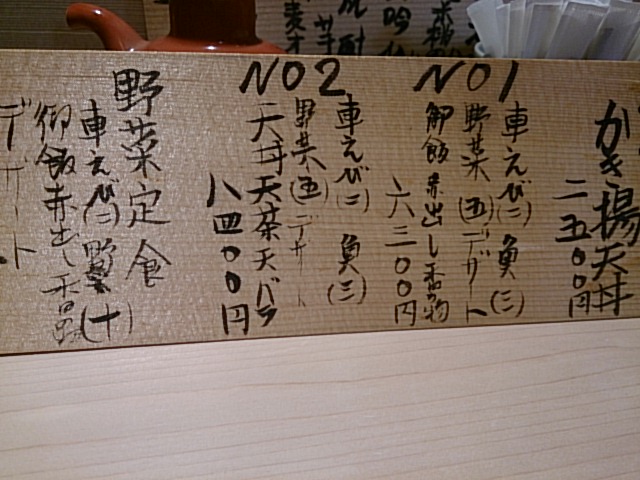 かき揚天丼
二五〇〇円
NO1
車えび(二) 魚(三)
野菜(五)デザート
御飯赤出し香の物
六三〇〇円
NO2
車えび(二) 魚(三)
野菜(五)デザート
天丼天茶天バラ
八四〇〇円
野菜定食
車えび(二)野菜(十)
御飯赤出し香の物
デザート